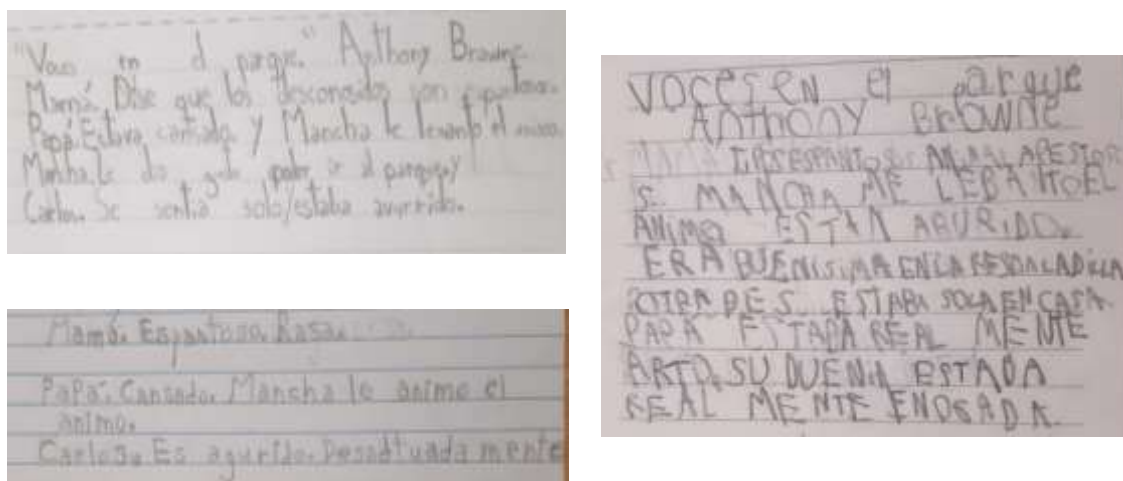 "Voces en el parque" Anthony Browne
Mamá. Dise que los desconosidos son
Papá. Estava cansado y Mancha le levanto el animo.
Mancha. Le dio gusto poder ir al parque y
Carlos. Se sentia solo/estaba avurrido.
Mamá. Espantoso. Rasa.
Papá. Cansado. Mancha le anime el
animo.
Carlos. Es agurido. Desadtuada mente
VOCES EN el parque
ANThONY BROWNE
MANCHA ME LEBANTO EL
ANIMO ESTÁN ABURIDO.
ERA BUENISIMA EN LA RESBALADILLA
ESTABA SOLA EN CASA.
PAPÁ ESTABA REAL MENTE
ARTO. SU DUEÑA ESTABA
REAL MENTE ENOGADA.